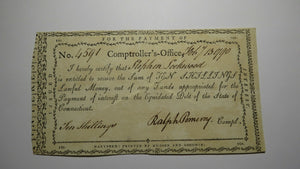 FOR THE PAYMENT OF
No. 4391 Comptroller's-Office, Feby. 13 1790
I hereby certify that Stephen Lockwood
is entitled to receive the Sum of TEN SHILLINGS
Lawful Money, out of any Funds appropriated for the
Payment of interest on the Liquidated Debt of the State of
Connecticut.
Ten Shillings Ralph Pomeroy Compt.
HARTFORD: PRINTED BY HUDSON AND GOODWIN.